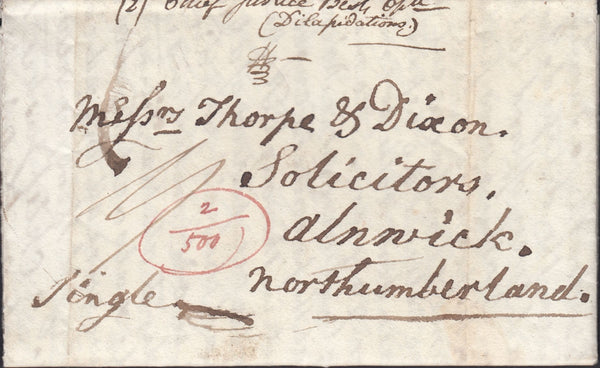 (2) Chief Justice Best, Opn
(Dilapidations)
Messrs Thorpe & Dixon.
Solicitors,
Alnwick.
Northumberland.
2
500
Single